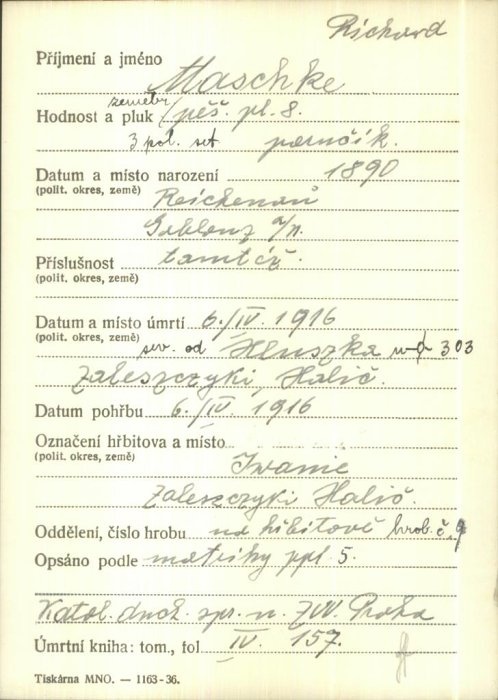 Richard
Příjmení a jméno Maschke
zeměbr
Hodnost a pluk pěš. pl. 8.
3 pol. set poručík.
Datum a místo narození 1890
(polit. okres, země) Reichenau
Gablonz a/N.
Příslušnost tamtéž.
(polit. okres, země)
Datum a místo úmrtí 6./IV. 1916
(polit. okres, země) sev. od Hluszka 303
Zaleszczyki, Halič.
Datum pohřbu 6./IV. 1916
Označení hřbitova a místo
(polit. okres, země) Iwanie
Zaleszczyki Halič.
Oddělení, číslo hrobu na hřbitově hrob. č. 9
Opsáno podle matriky ppl 5.
Katol. duch. spr. n. ZVV. Praha
Úmrtní kniha: tom., fol IV. 157.
Tiskárna MNO. — 1163-36.